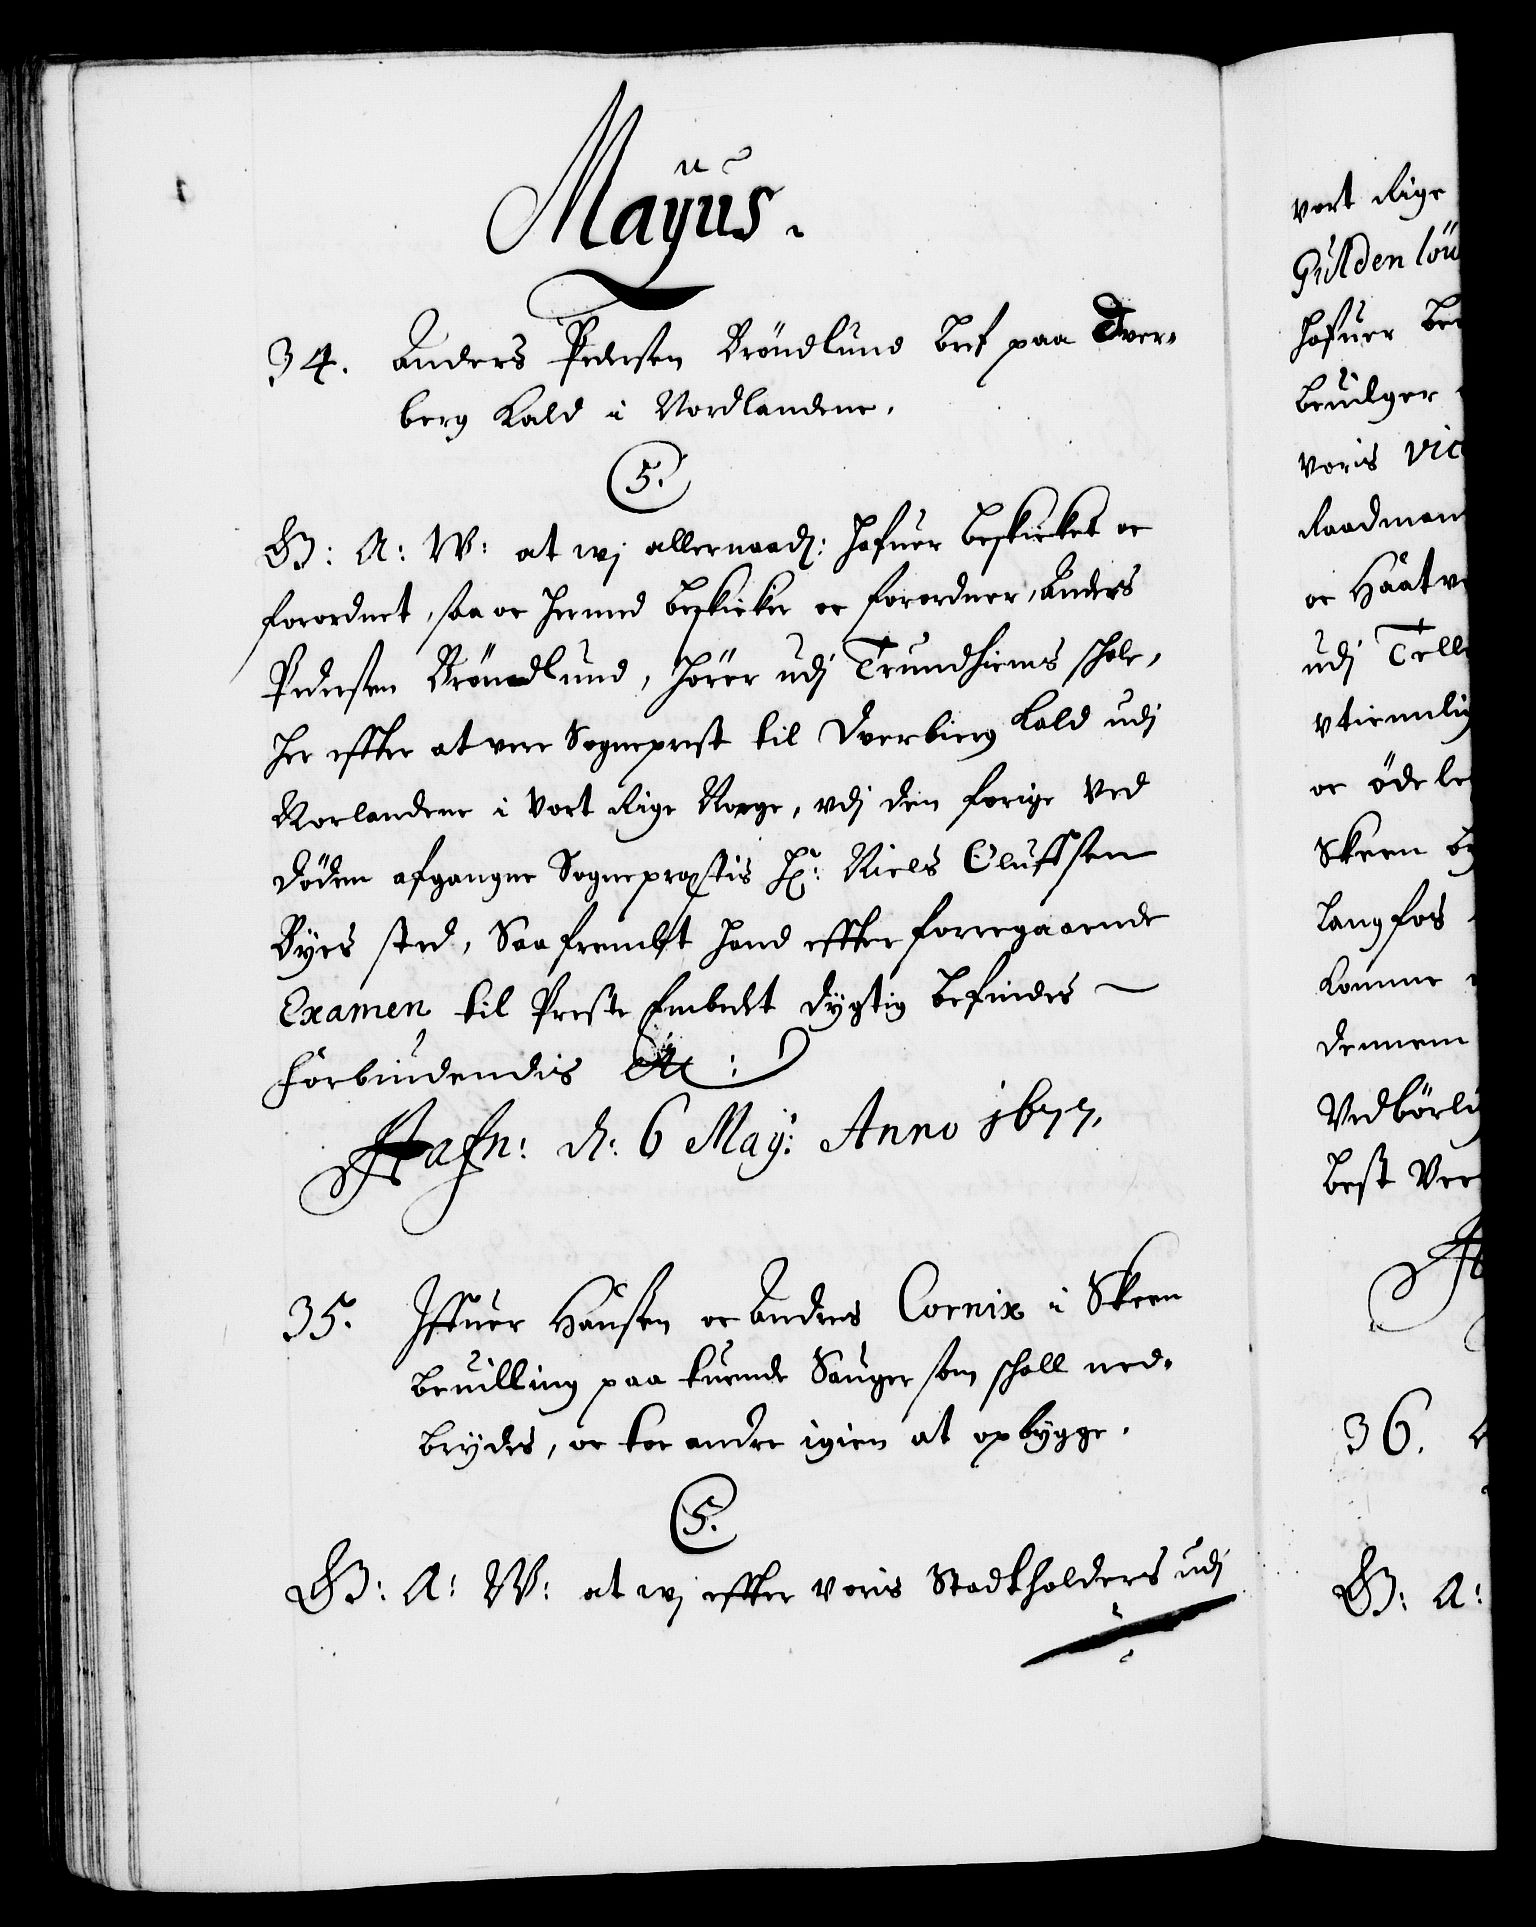 Mayus.
34. Anders Pedersen Bröndlund bref paa Dver-
berg Kald i Nordlandene.
(5.)
G: A: W: at wj allernaadj: hafuer beskicket oc
forordnet, saa oc hermed beskicker oc forordner, Anders
Pedersen Bröndlund, Hörer udj Trundhiems schole,
her effter at vere Sogneprest til Dverbierg Kald udj
Norlandene i Vort Rige Norge, udj den forige ved
döden afgangne Sogneprestis Hr: Niels Oluffsen
Byes sted, Saafrembt hand effter foregaaende
Examen til Preste Embedet dygtig befindes
Forbiudendis etc:
Hafn: d: 6 May: Anno 1677.
35. Iffuer Hansen oc Anders Cornix i Skeen
beuilling paa tuende Sauger som schall ned-
brydes, oc toe andre igien at opbygge.
(5.)
G: A: W: at wj effter voris Stadtholders udj
vort Rige
Gülden löu
hafuer be
beuilger
voris vic
Raadman
oc
udj Tell
oc öde le
Skeen
Langfos
Komme
dennem
Vedbörli
best Ver
36.
G: A: